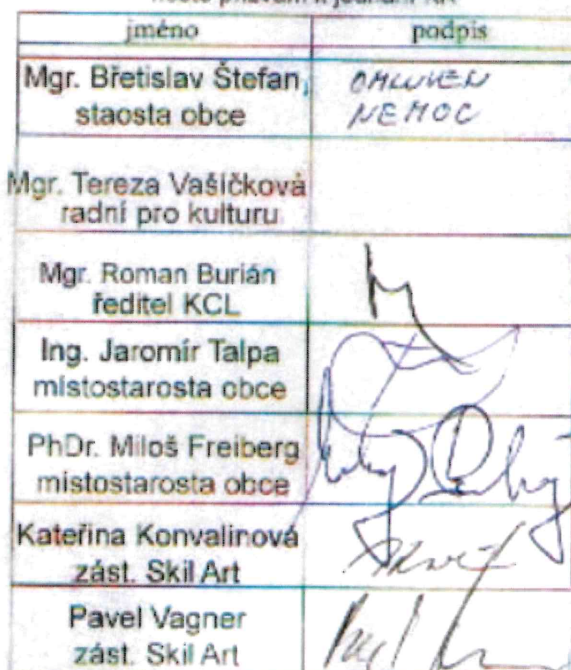 jméno podpis
Mgr. Břetislav Štefan, OMLUVEN
staosta obce NEMOC
Mgr. Tereza Vašíčková
radní pro kulturu
Mgr. Roman Burián
ředitel KCL
Ing. Jaromír Talpa
místostarosta obce
PhDr. Miloš Freiberg
místostarosta obce
Kateřina Konvalinová
zást. Skil Art
Pavel Vagner
zást. Skil Art